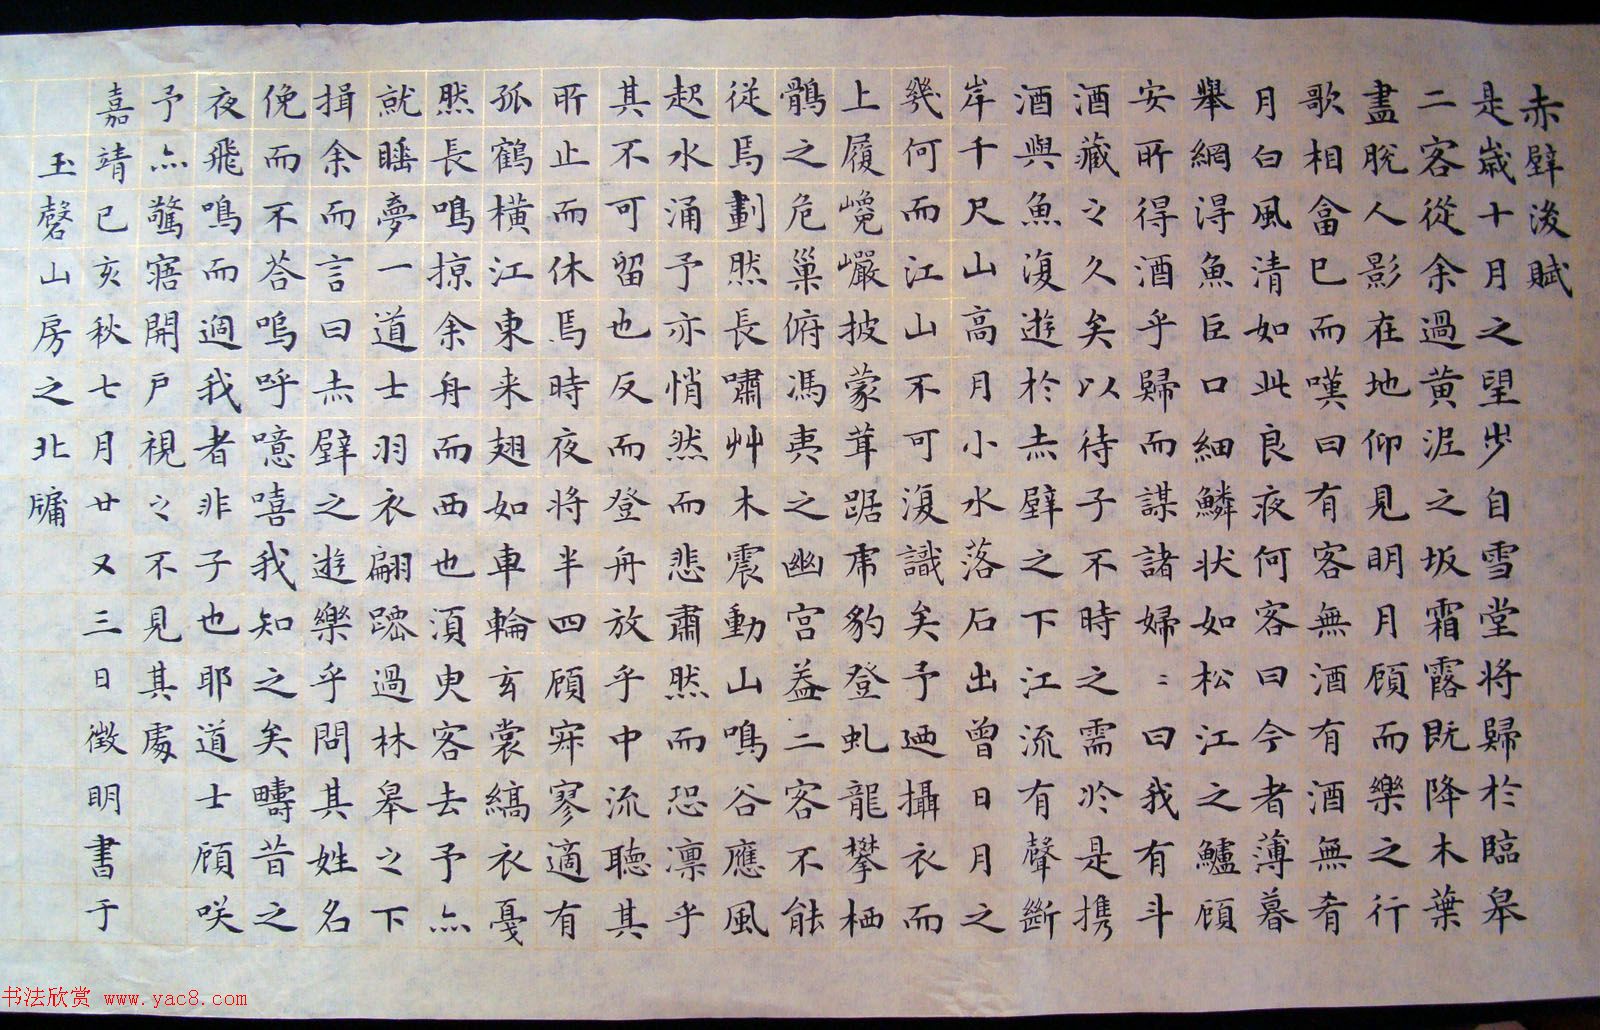 赤壁後賦
是歲十月之望步自雪堂將歸於臨皋
二客從余過黃泥之坂霜露既降木葉
盡脫人影在地仰見明月顧而樂之行
歌相畣已而嘆曰有客無酒有酒無肴
月白風清如此良夜何客曰今者薄暮
舉網得魚巨口細鱗狀如松江之鱸顧
安所得酒乎歸而謀諸婦〻曰我有斗
酒藏之久矣以待子不時之需於是攜
酒與魚復遊於赤壁之下江流有聲斷
岸千尺山高月小水落石出曾日月之
幾何而江山不可復識矣予迺攝衣而
上履巉巖披蒙茸踞虎豹登虬龍攀栖
鶻之危巢俯馮夷之幽宮蓋二客不能
從焉劃然長嘯艸木震動山鳴谷應風
起水涌予亦悄然而悲肅然而恐凛乎
其不可留也反而登舟放乎中流聽其
所止而休焉時夜將半四顧寂寥適有
孤鶴橫江東来翅如車輪玄裳縞衣戛
然長鳴掠余舟而西也須臾客去予亦
就睡夢一道士羽衣翩躚過林皋之下
揖余而言曰赤壁之遊樂乎問其姓名
俛而不答嗚呼噫嘻我知之矣疇昔之
夜飛鳴而過我者非子也耶道士顧咲
予亦驚寤開戶視之不見其處
嘉靖己亥秋七月廿又三日徵明書于
玉磬山房之北牖
书法欣赏 www.yac8.com